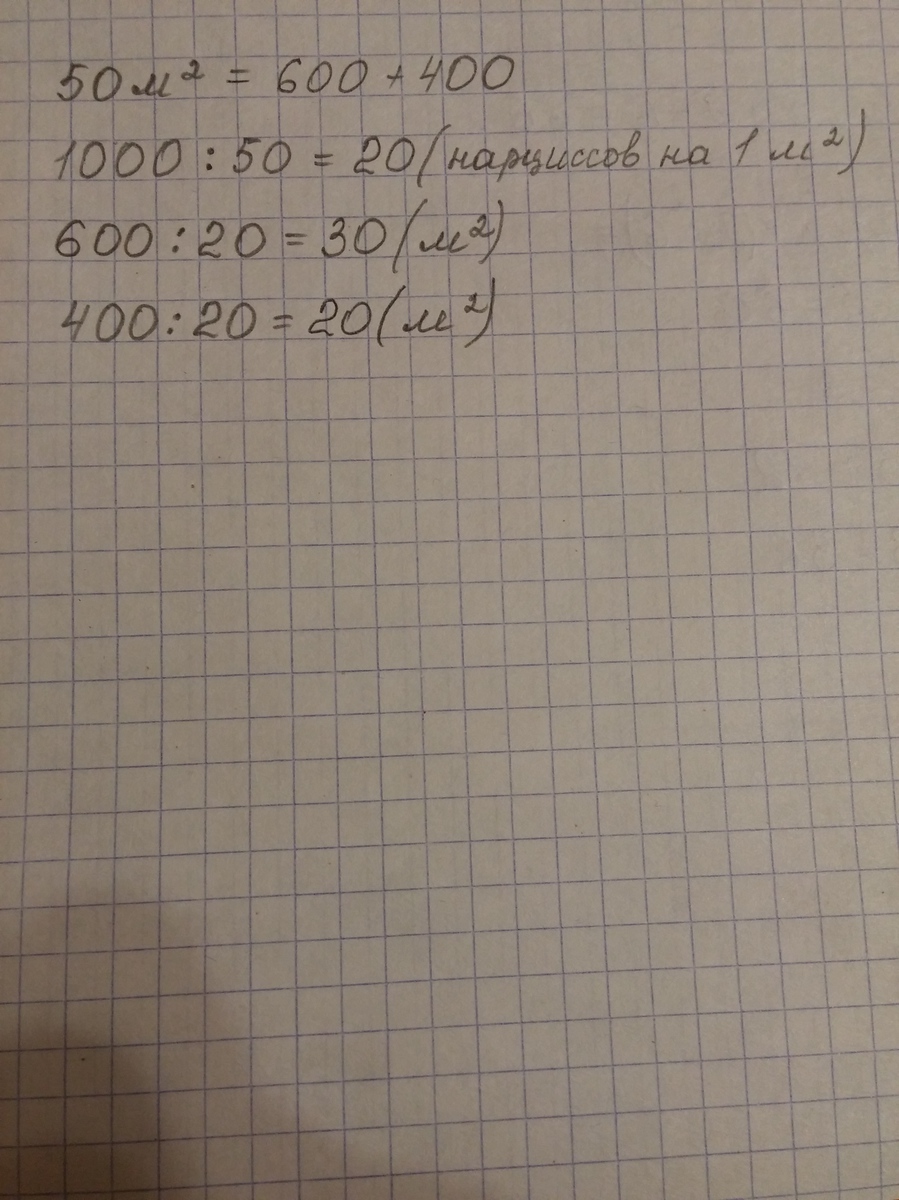 50 м² = 600 + 400
1000 : 50 = 20 (нарциссов на 1 м²)
600 : 20 = 30 (м²)
400 : 20 = 20 (м²)